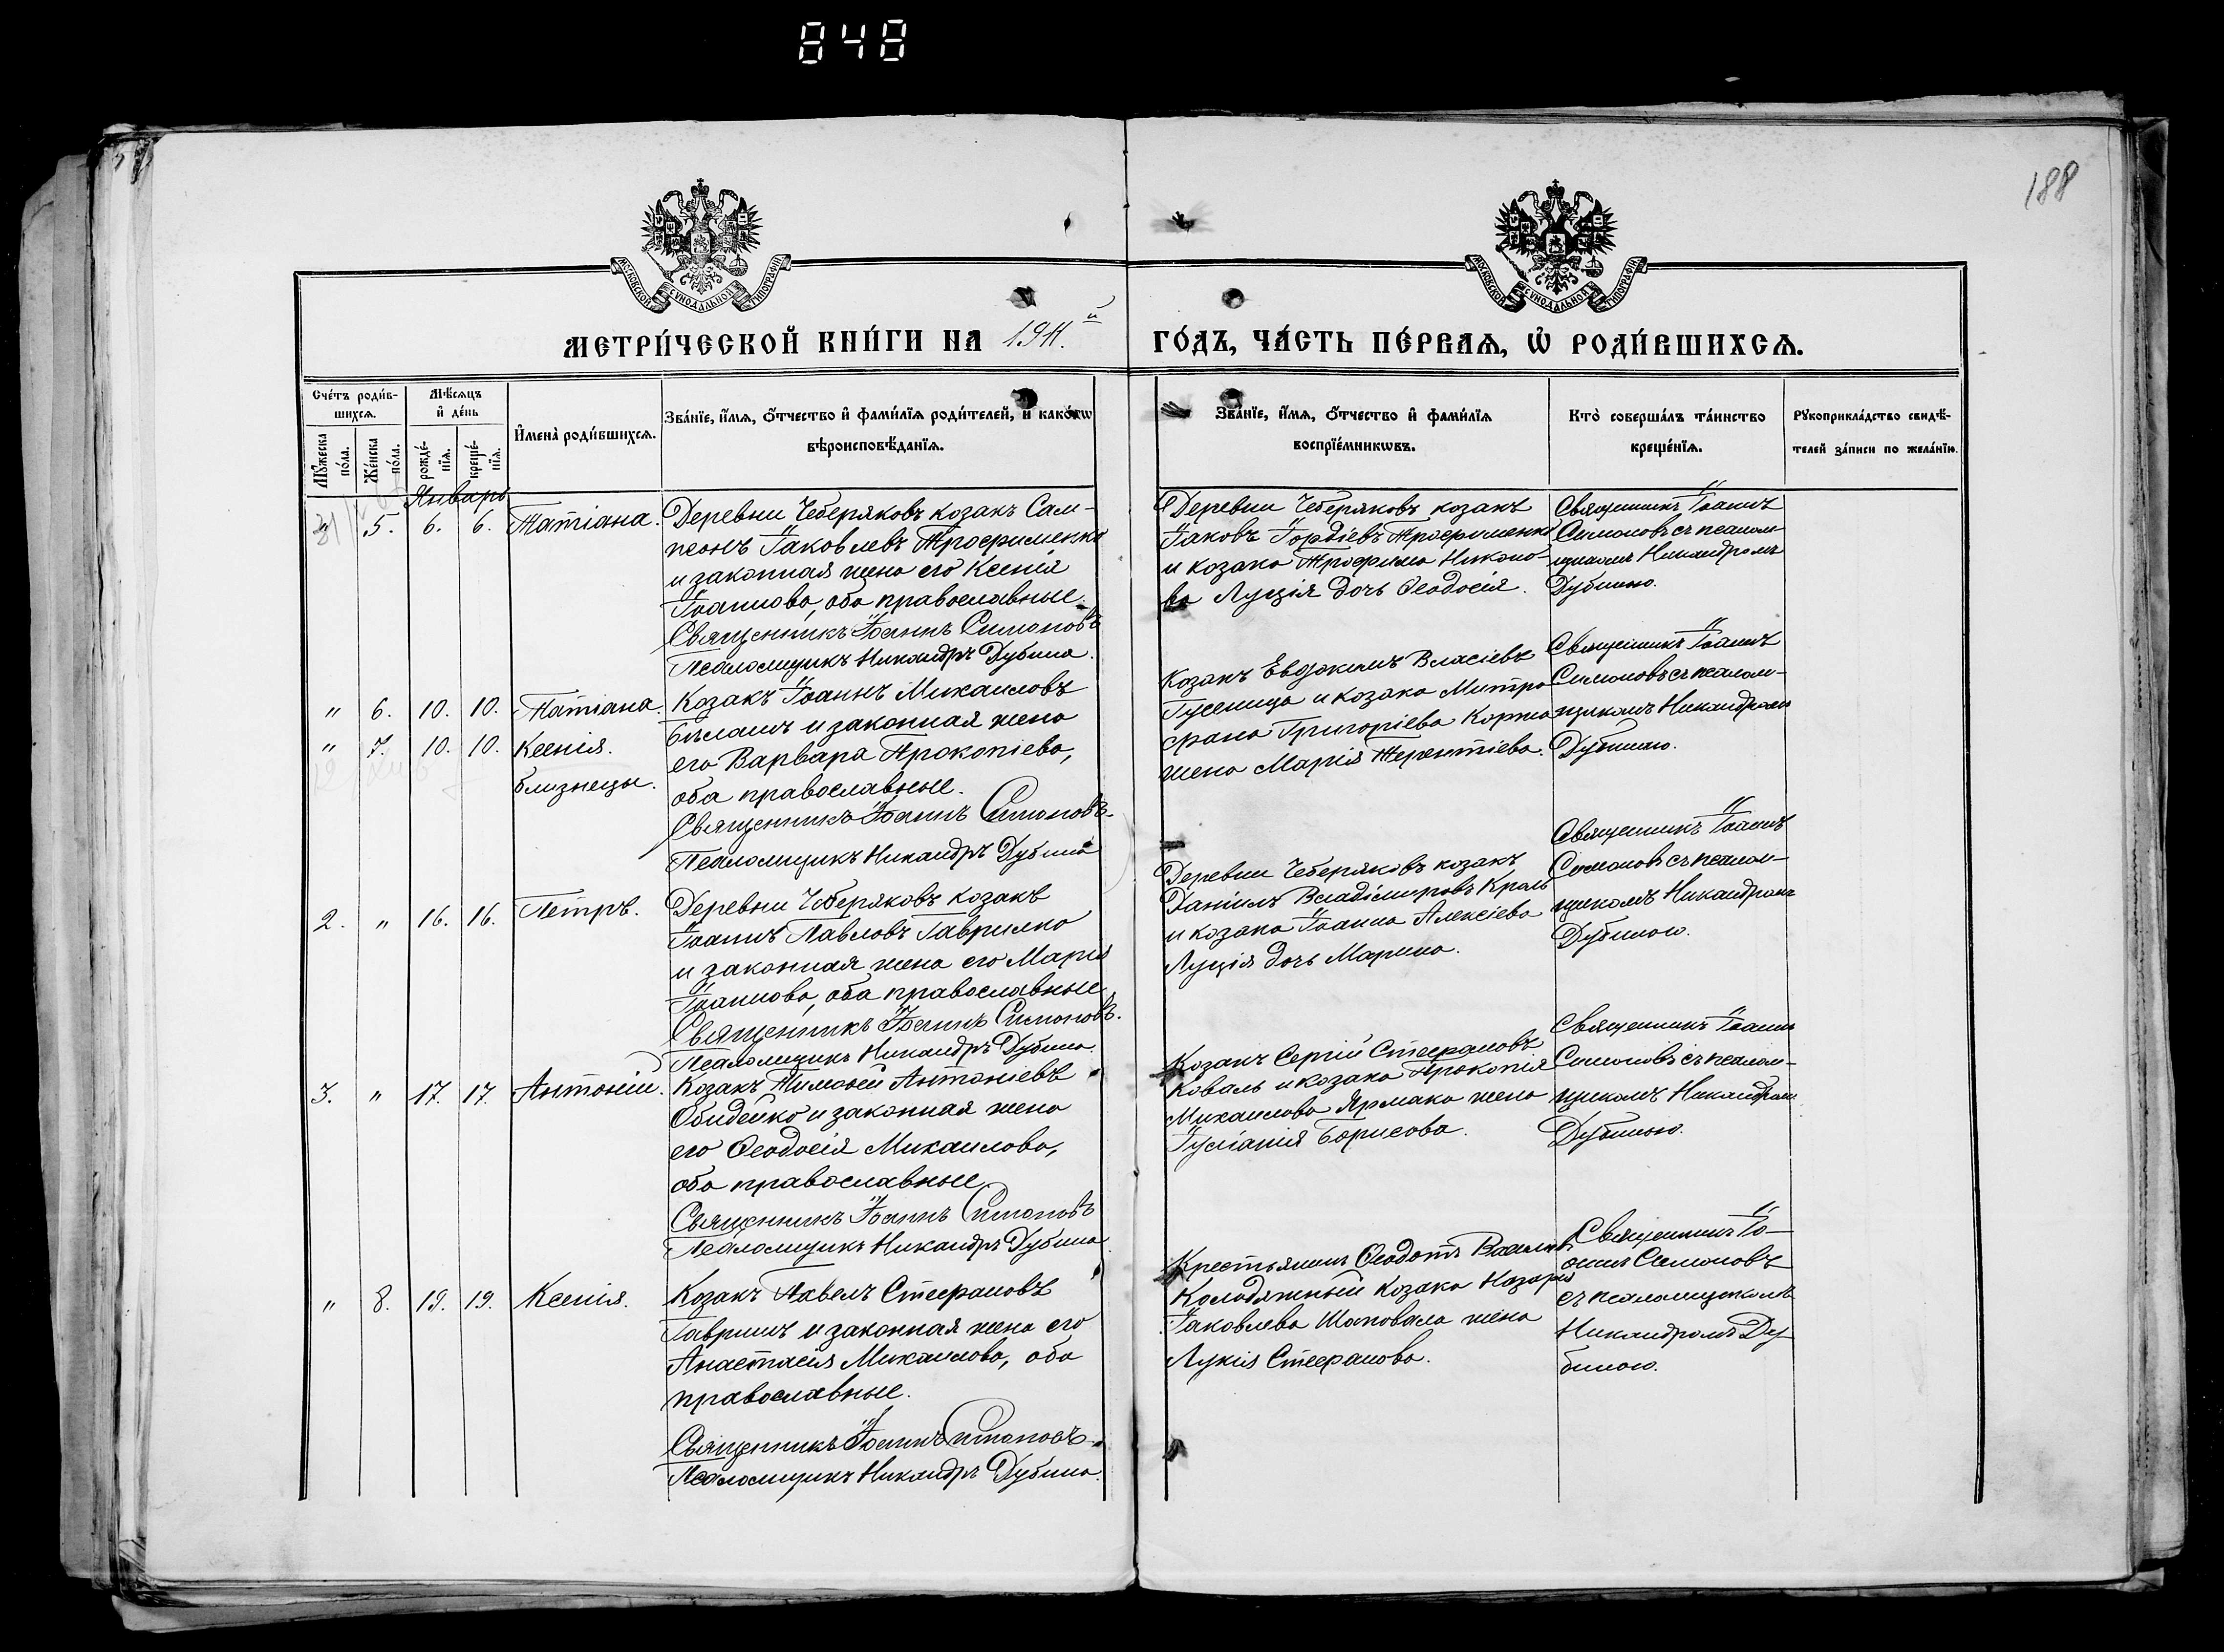 848
188
МОСКОВСКОЙ СѴНОДАЛЬНОЙ ТИПОГРАФІИ
МОСКОВСКОЙ СѴНОДАЛЬНОЙ ТИПОГРАФІИ
МЕТРИ́ЧЕСКОЙ КНИ́ГИ НА 1911.й ГО́ДЪ, ЧА́СТЬ ПЕ́РВАѦ, Ѡ҆ РОДИ́ВШИХСѦ.
Сче́тъ роди́в-
шихсѧ.
Мꙋ́жеска
по́ла.
Же́нска
по́ла.
Мѣ́сѧцъ
и҆ де́нь
рожде́-
нїѧ.
креще́-
нїѧ.
И҆мена̀ роди́вшихсѧ.
Зва́нїе, и҆́мѧ, ѻ҆́тчество и҆ фами́лїѧ роди́телей, и҆ како́гѡ
вѣроисповѣ́данїѧ.
Зва́нїе, и҆́мѧ, ѻ҆́тчество и҆ фами́лїѧ
воспрїе́мникѡвъ.
Кто̀ соверша́лъ та́инство
креще́нїѧ.
Рꙋкоприкла́дство свидѣ́-
телей за́писи по жела́нїю.
Январь
" 5. 6. 6. Татіана.
Деревни Чеберяковъ козакъ Сам-
псонъ Іаковлевъ Трофименко
и законная жена его Ксенія
Іоаннова, оба православные.
Священникъ Іоаннъ Симоновъ
Псаломщикъ Никандръ Дубина.
Деревни Чеберяковъ козакъ
Іаковъ Гордіевъ Трофименко
и козака Трофима Никоно-
ва Луція дочь Ѳеодосія.
Священникъ Іоаннъ
Симоновъ съ псалом-
щикомъ Никандромъ
Дубиною.
" 6. 10. 10. Татіана.
" 7. 10. 10. Ксенія.
близнецы.
Козакъ Іоаннъ Михаиловъ
Бѣлашъ и законная жена
его Варвара Прокопіева,
оба православные.
Священникъ Іоаннъ Симоновъ
Псаломщикъ Никандръ Дубина
Козакъ Евдокимъ Власіевъ
Гусеница и козака Митро-
фана Григоріева Коржа
жена Марія Терентіева.
Священникъ Іоаннъ
Симоновъ съ псалом-
щикомъ Никандромъ
Дубиною.
2. " 16. 16. Петръ.
Деревни Чеберяковъ козакъ
Іоаннъ Павловъ Гаврилко
и законная жена его Марія
Іоаннова, оба православные
Священникъ Іоаннъ Симоновъ.
Псаломщикъ Никандръ Дубина.
Деревни Чеберяковъ козакъ
Даніилъ Владіміровъ Краль
и козака Іоанна Алексіева
Луція дочь Марина.
Священникъ Іоаннъ
Симоновъ съ псалом-
щикомъ Никандромъ
Дубиною.
3. " 17. 17. Антоній.
Козакъ Тимоѳей Антоніевъ
Обидейко и законная жена
его Ѳеодосія Михаилова,
оба православные
Священникъ Іоаннъ Симоновъ
Псаломщикъ Никандръ Дубина.
Козакъ Сергій Стефановъ
Коваль и козака Прокопія
Михаилова Ярмака жена
Гусіанія Борисова.
Священникъ Іоаннъ
Симоновъ съ псалом-
щикомъ Никандромъ
Дубиною.
" 8. 19. 19. Ксенія.
Козакъ Павелъ Стефановъ
Гавришъ и законная жена его
Анастасія Михаилова, оба
православные.
Священникъ Іоаннъ Симоновъ.
Псаломщикъ Никандръ Дубина.
Крестьянинъ Ѳеодотъ Василіевъ
Колодяжный козака Назарія
Іаковлева Шаповала жена
Лукія Стефанова.
Священникъ Іо-
аннъ Симоновъ
съ псаломщикомъ
Никандромъ Ду-
биною.